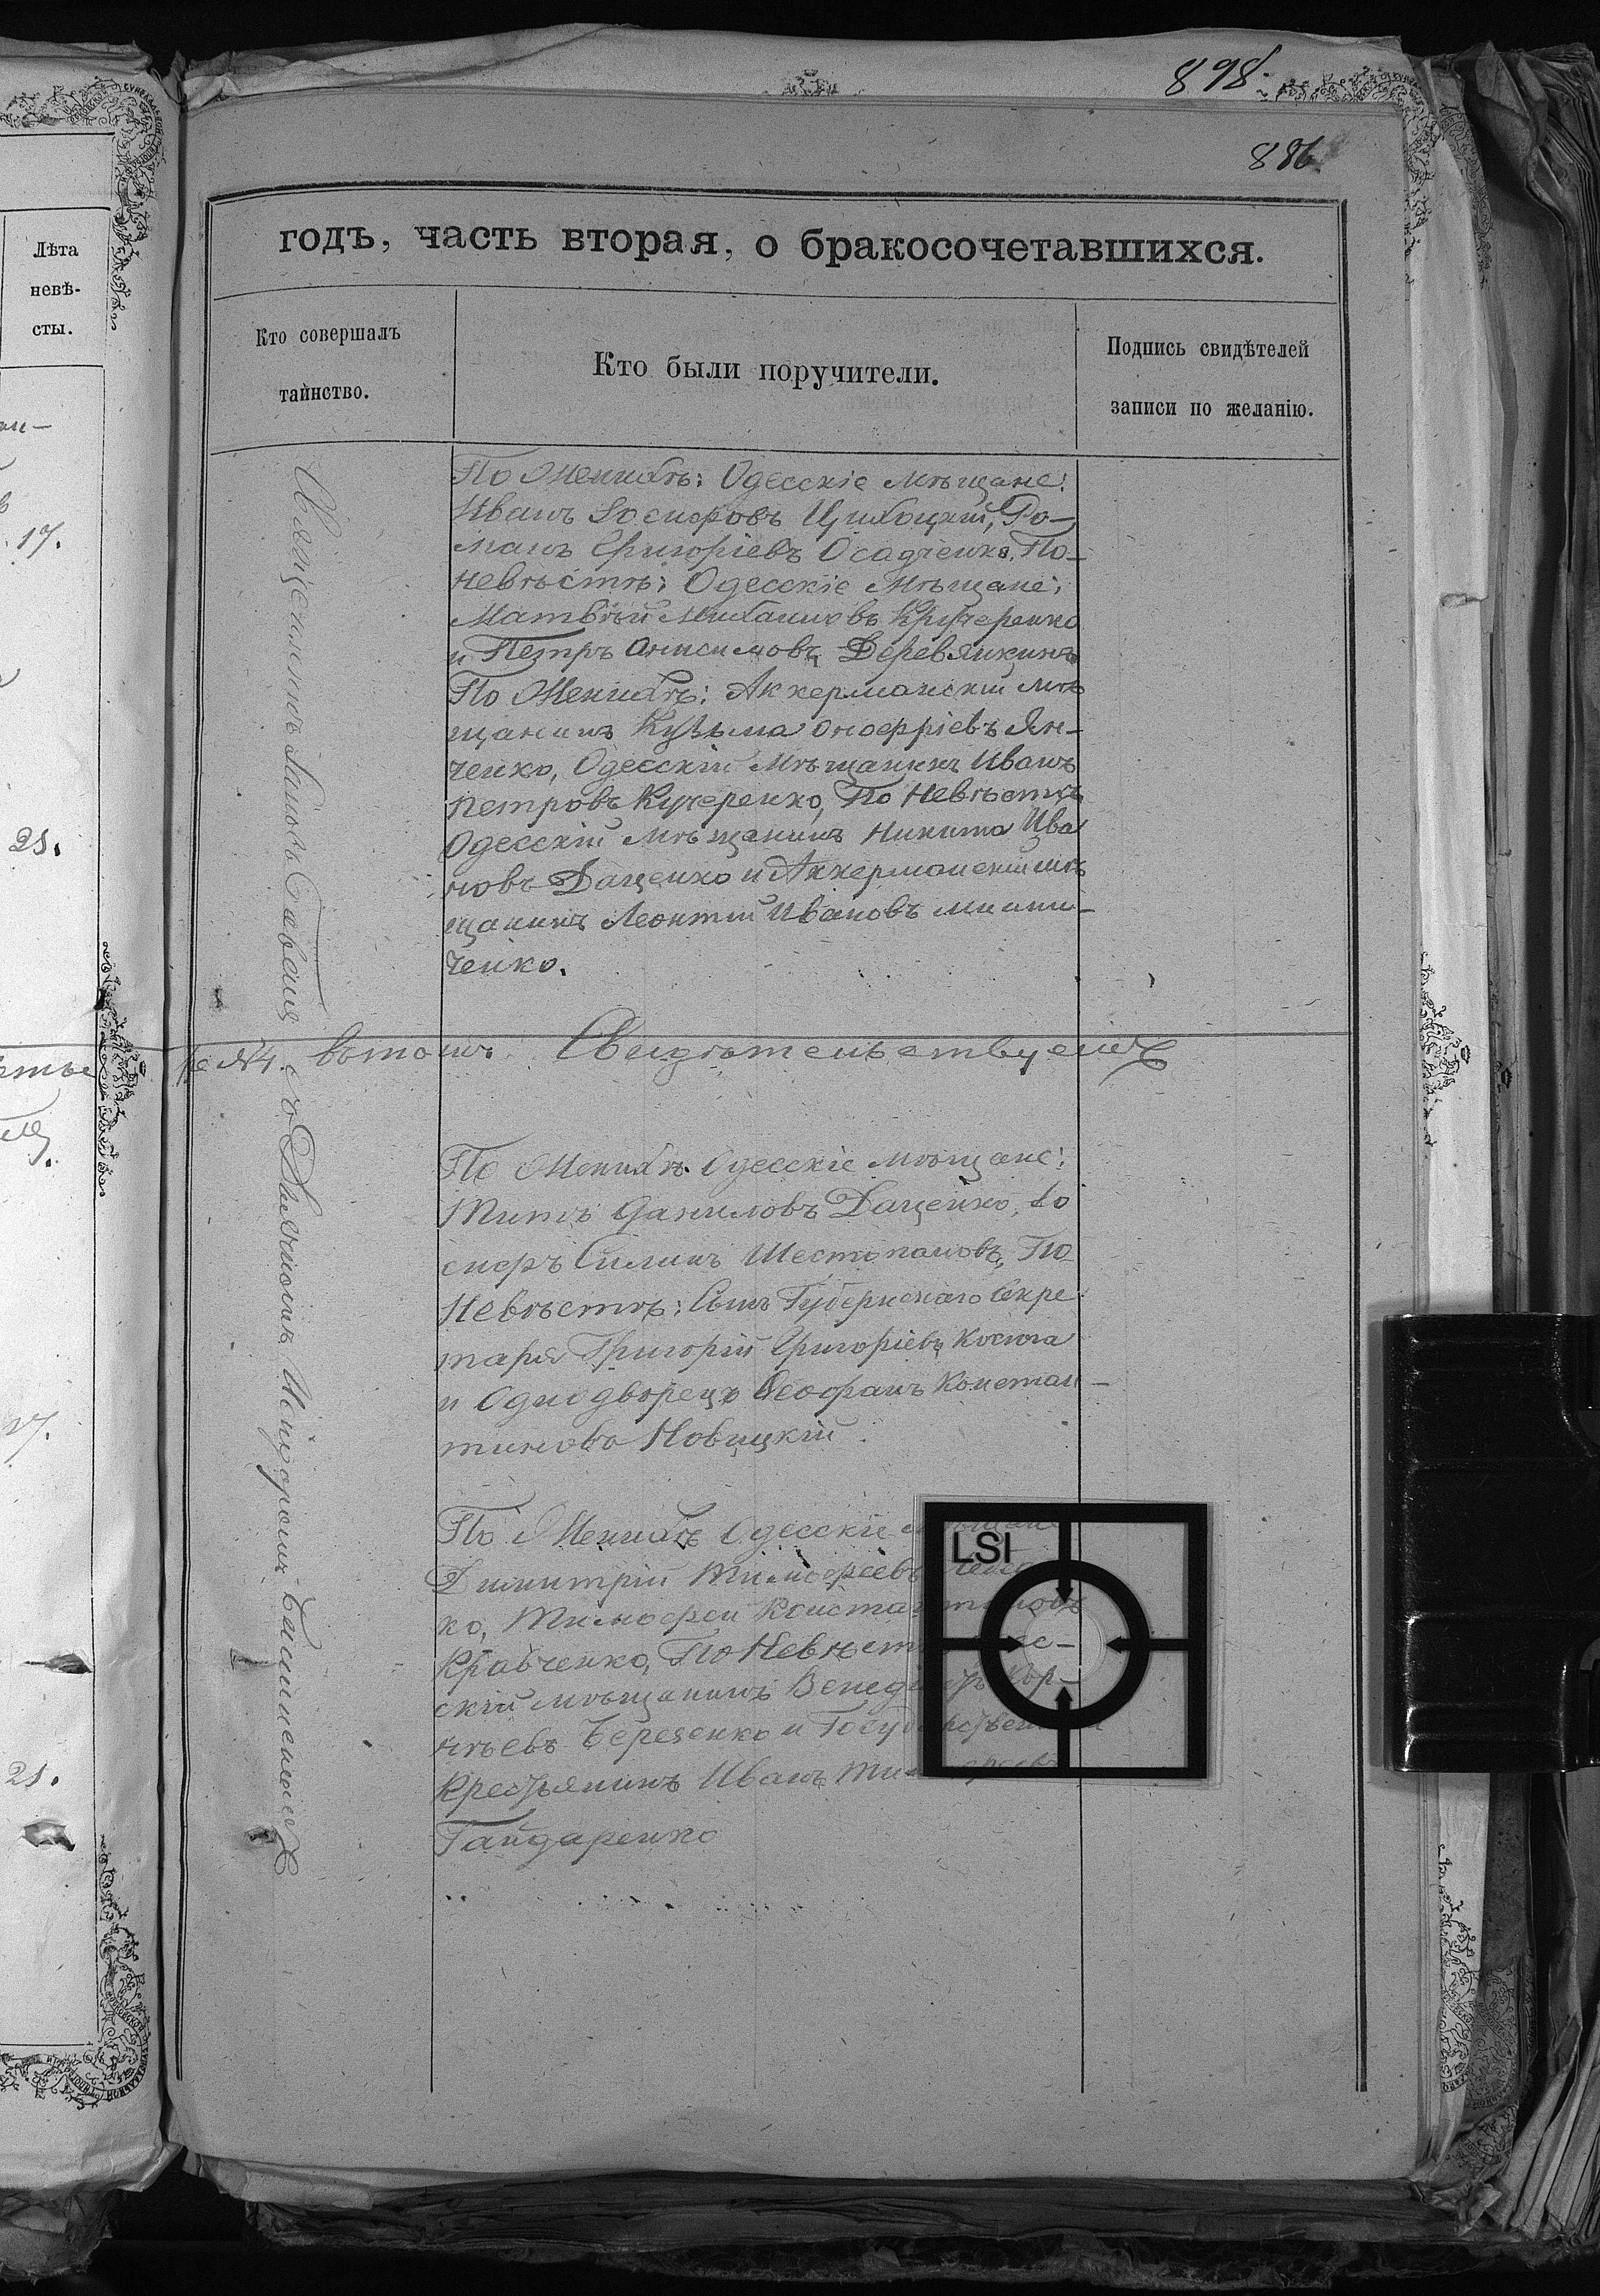 898.
886
Лѣта
невѣ-
сты.
17.
21.
21.
годъ, часть вторая, о бракосочетавшихся.
Кто совершалъ
таинство.
Кто были поручители.
Подпись свидѣтелей
записи по желанію.
Священникъ Савва съ Діакономъ Никифоромъ
По Женихѣ: Одесскіе Мѣщане:
Иванъ Іосифовъ Цибоцкій, Ро-
манъ Григоріевъ Осадченко, По-
невѣстѣ: Одесскіе Мѣщане:
Матвѣй Михаиловъ Кучеренко
и Петръ Онисимовъ Деревянкинъ
По Женихѣ: Аккерманскій мѣ
щанинъ Кузьма Оноффріевъ Ян-
ченко, Одесскій Мѣщанинъ Иванъ
Петровъ Кучеренко, По Невѣстѣ
Одесскій мѣщанинъ Никита Ива
новъ Даценко и Аккерманскій мѣ
щанинъ Леонтій Ивановъ
ченко.
въ томъ Свидѣтельствуемъ
По Женихѣ Одесскіе мѣщане:
Титъ Даниловъ Даценко, Іо
сифъ Силинъ Шестопаловъ, По
Невѣстѣ: Сынъ Губернскаго Секре
таря Григорій Григоріевъ Косюга
и Однодворецъ Феофанъ Констан-
тиновъ Новицкій.
По Женихѣ Одесскіе мѣщане
Димитрій Тимофеевъ
ко, Тимофей Константиновъ
Кравченко, По Невѣстѣ
скій мѣщанинъ Венедиктъ Кор-
нѣевъ Березенко и Государственный
крестьянинъ Иванъ Тимофеевъ
Гайдаренко
LSI